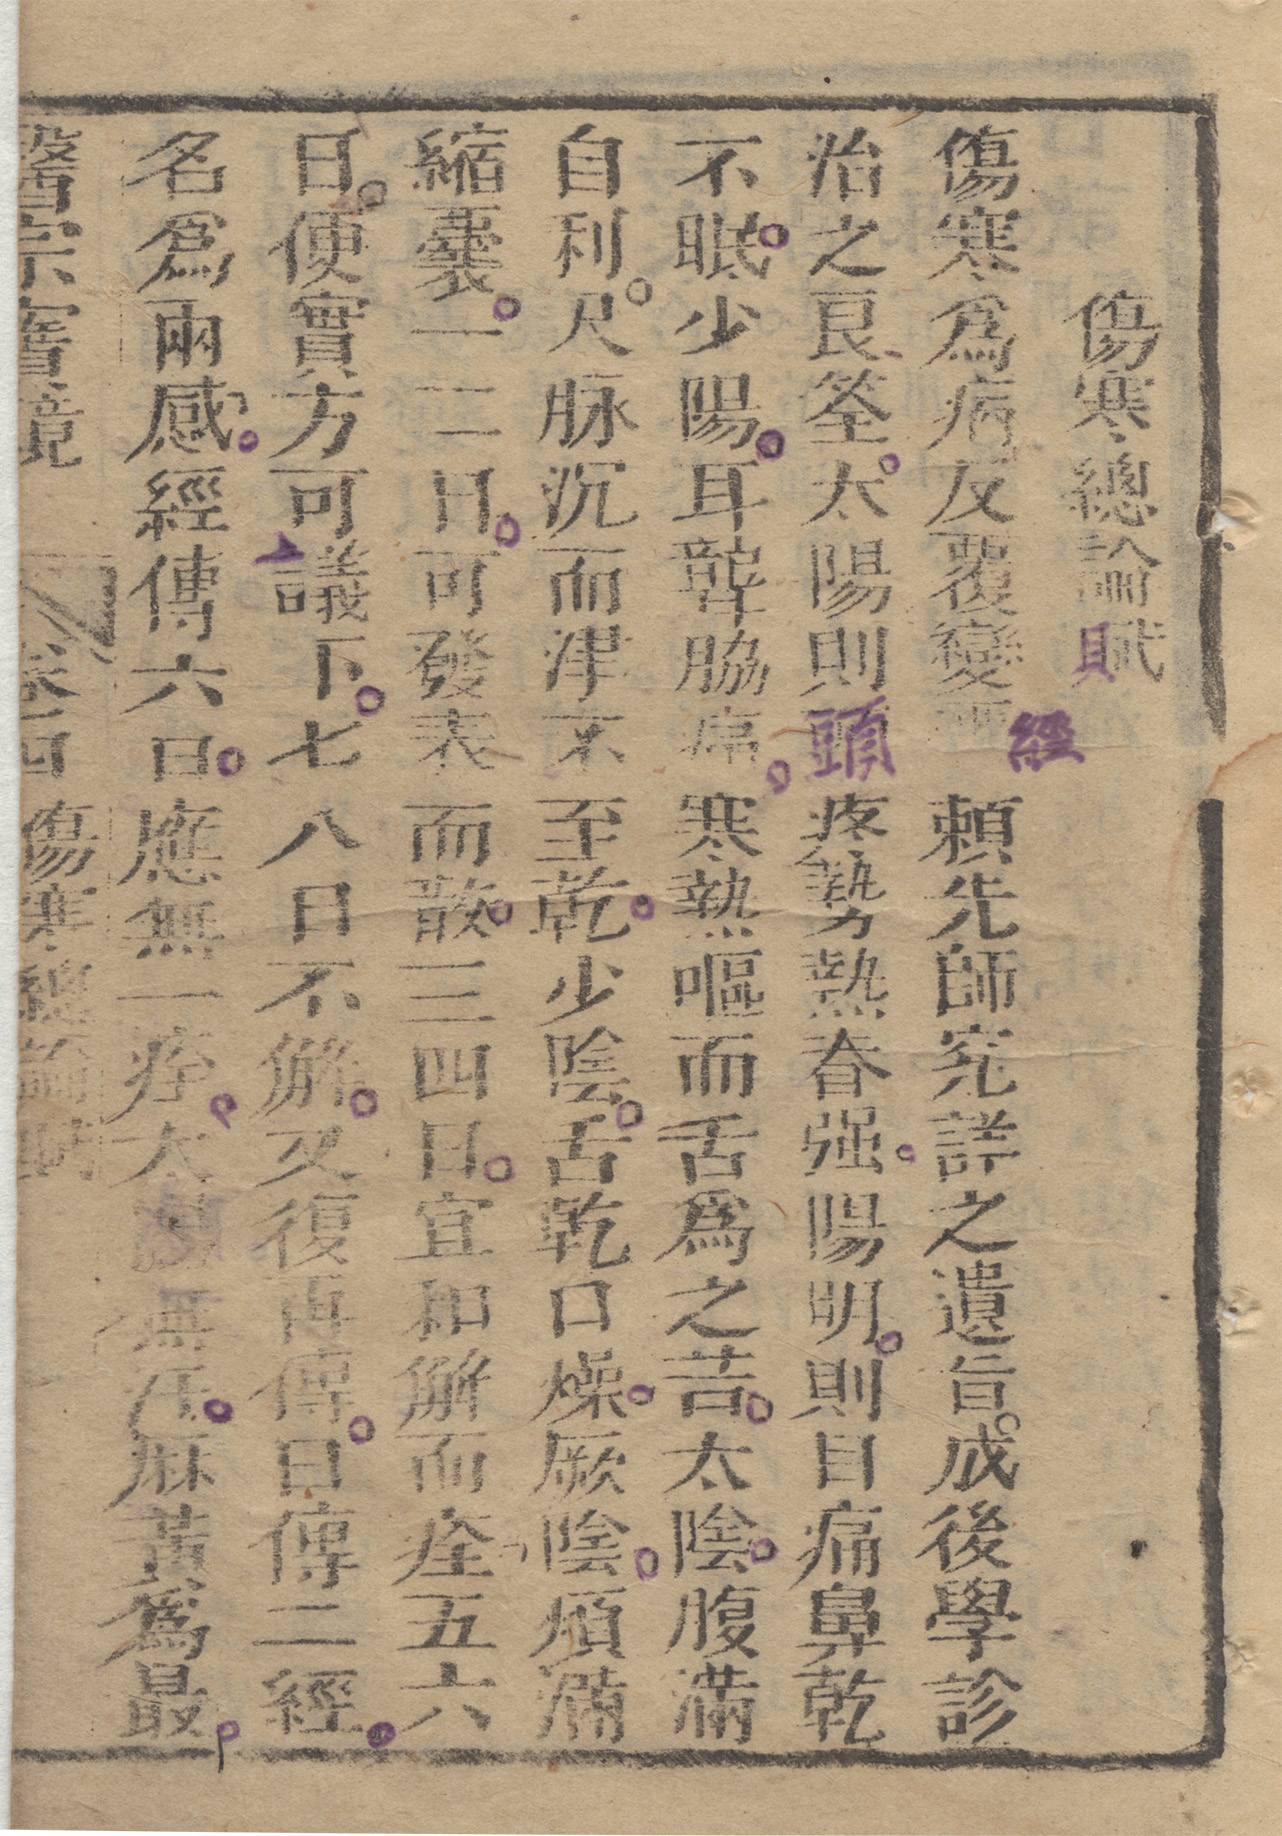 傷寒總論賦
傷寒為病反覆變經賴先師究詳之遺旨成後學診
治之良筌太陽則頭疼勢熱脊强陽明則目痛鼻乾
不眠少陽耳聾脇痛寒熱嘔而舌為之苦太陰腹滿
自利尺脉沉而津不至乾少陰舌乾口燥厥陰煩滿
縮囊一二日可發表而散三四日宜和解而痊五六
日便實方可議下七八日不解又復再傳日傳二經
名為兩感經傳六日應無一痊太陽無汗麻黃為最
醫宗寶鏡 卷四 傷寒總論賦